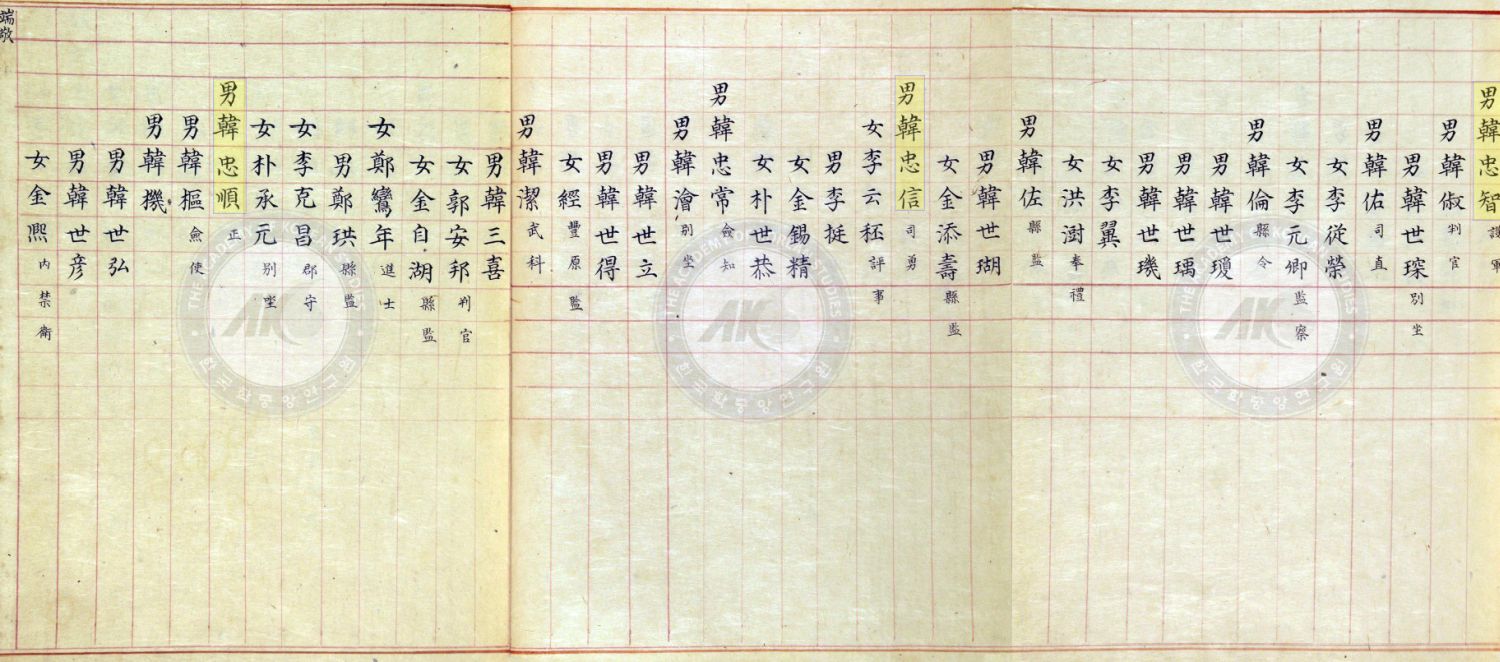 男韓忠智護軍
男韓俶判官
男韓世琛別坐
男韓佑司直
女李從榮
女李元卿監察
男韓倫縣令
男韓世瓊
男韓世瑀
男韓世璣
女李翼
女洪澍奉禮
男韓佐縣監
男韓世瑚
女金添壽縣監
男韓忠信司勇
女李云秠評事
男李挺
女金錫精
女朴世恭
男韓忠常僉知
男韓澮別坐
男韓世立
男韓世得
女經豐原監
男韓潔武科
男韓三喜
女郭安邦判官
女金自湖縣監
女鄭鸞年進士
男鄭珙縣監
女李克昌郡守
女朴承元別坐
男韓忠順正
男韓樞僉使
男韓機
男韓世弘
男韓世彦
女金凞內禁衛
端敬
THE ACADEMY OF KOREAN STUDIES
AK
한국학중앙연구원
THE ACADEMY OF KOREAN STUDIES
AK
한국학중앙연구원
THE ACADEMY OF KOREAN STUDIES
AK
한국학중앙연구원